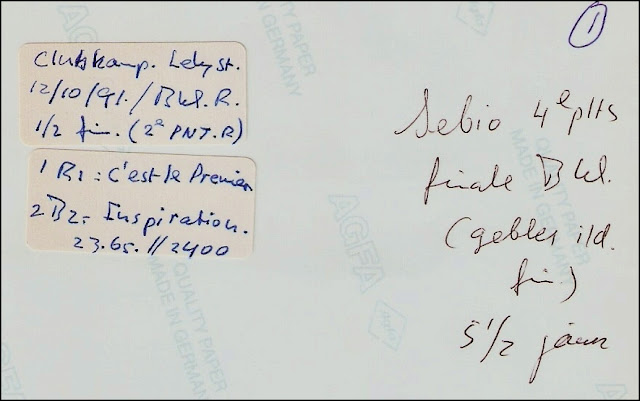 1
Clubkamp. Lelyst.
12/10/91. / B kl. R.
1/2 fin. (2e PNT. R)
1 R1 : C'est le Premier
2 B2 = Inspiration.
23.65. // 2400
Sebio 4e plts
finale B kl.
(gebles i/d.
fin)
5 1/2 jaar
AGFA
QUALITY PAPER
MADE IN GERMANY